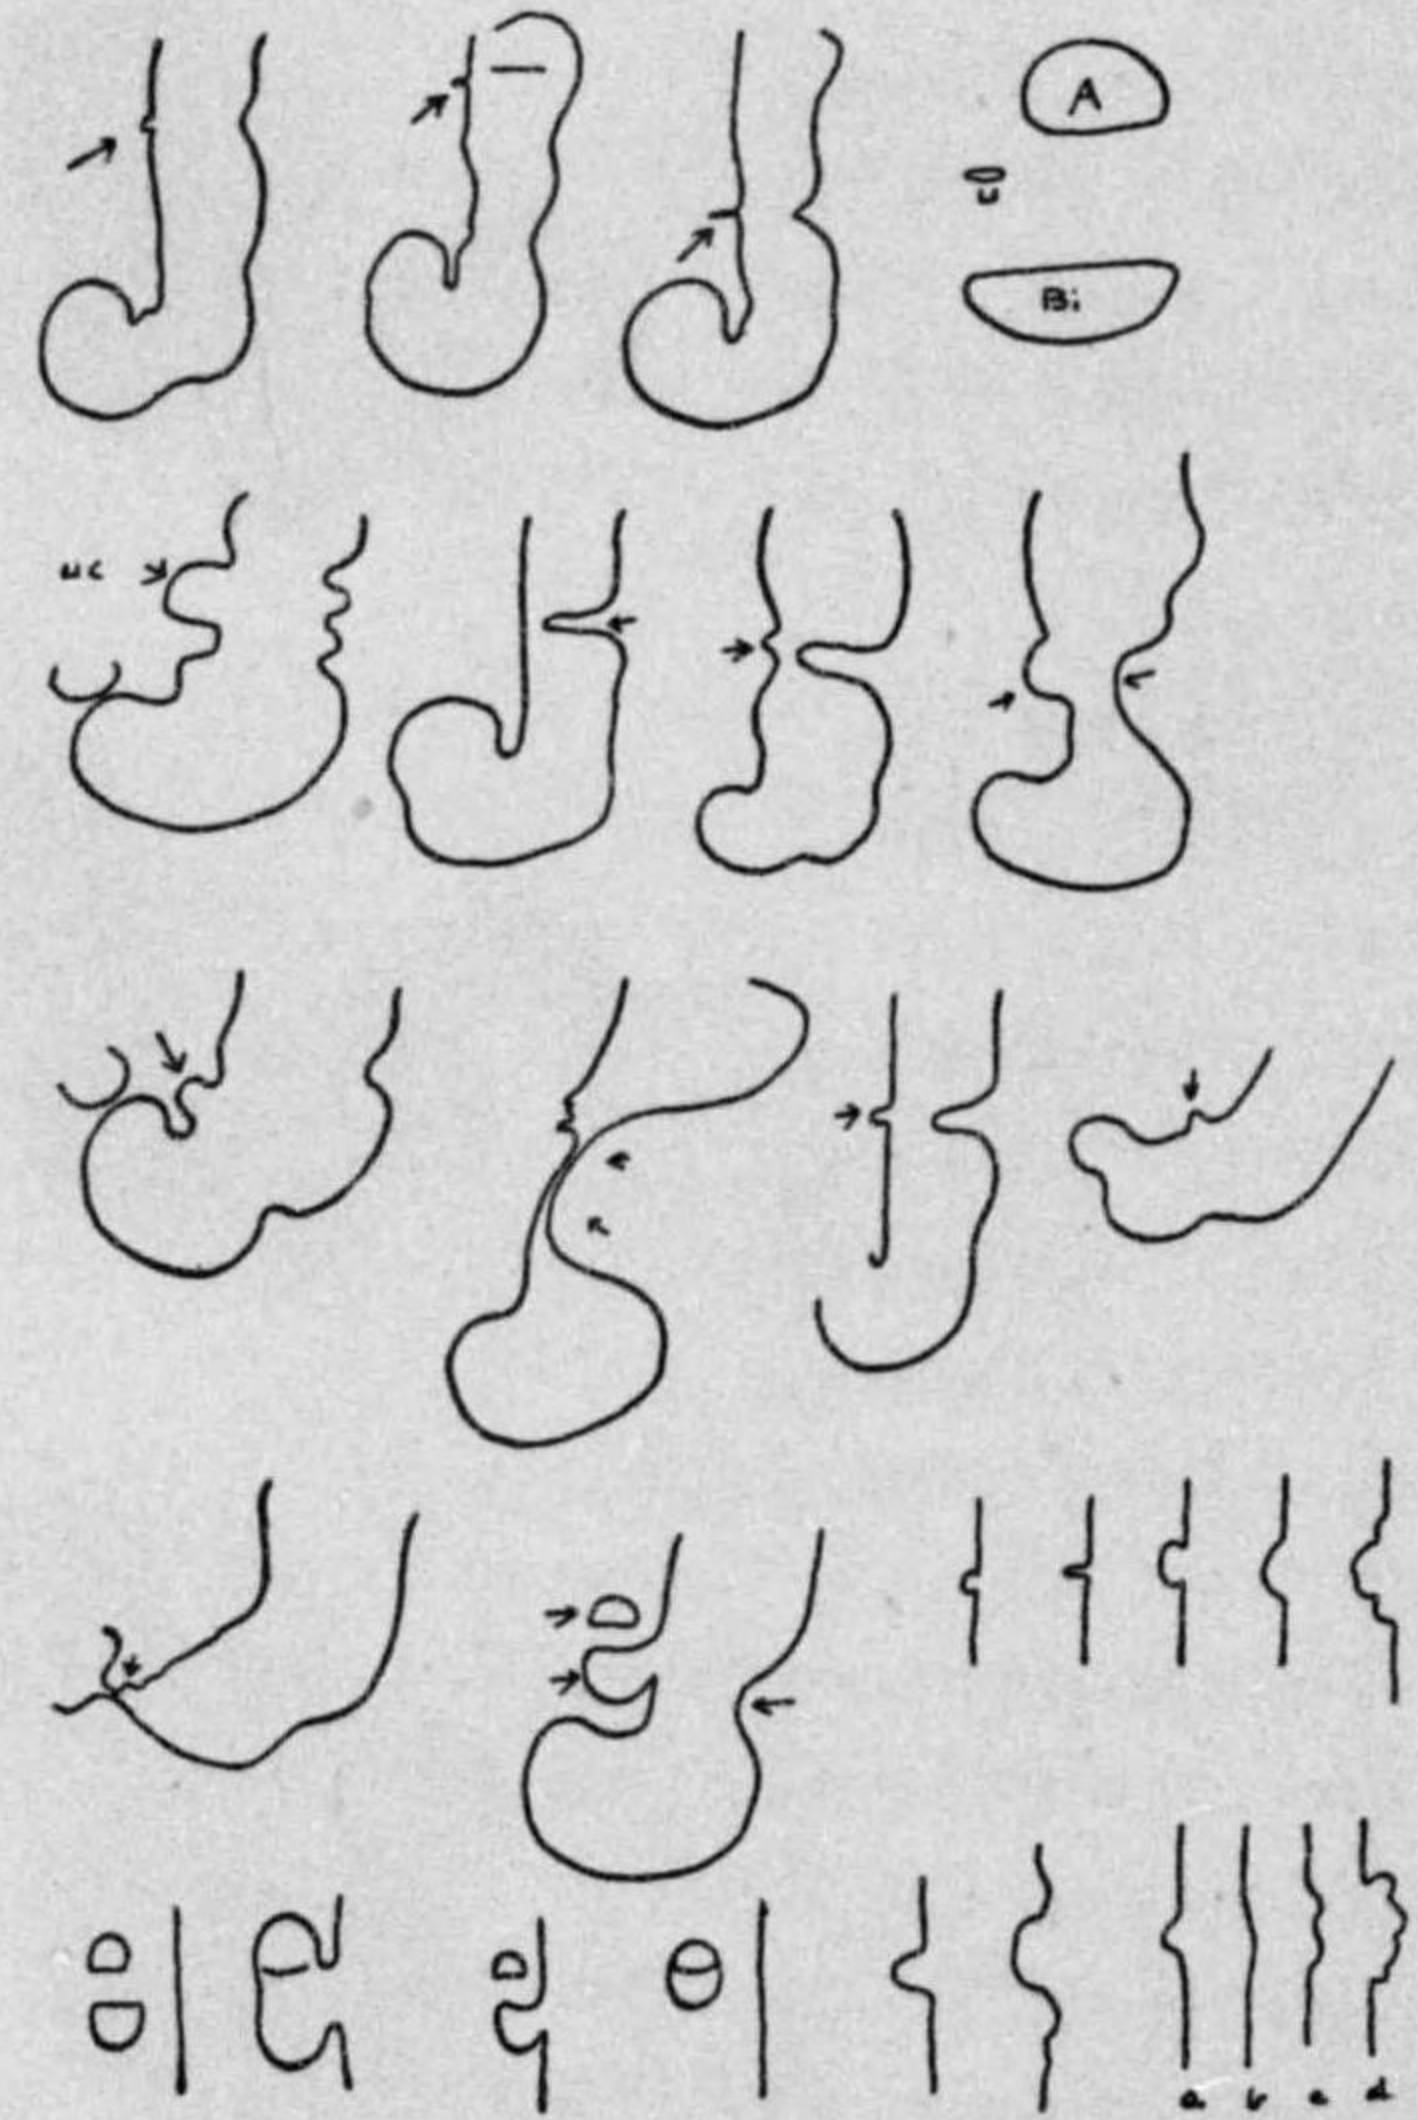 A
u
Bi
uc
a b c d